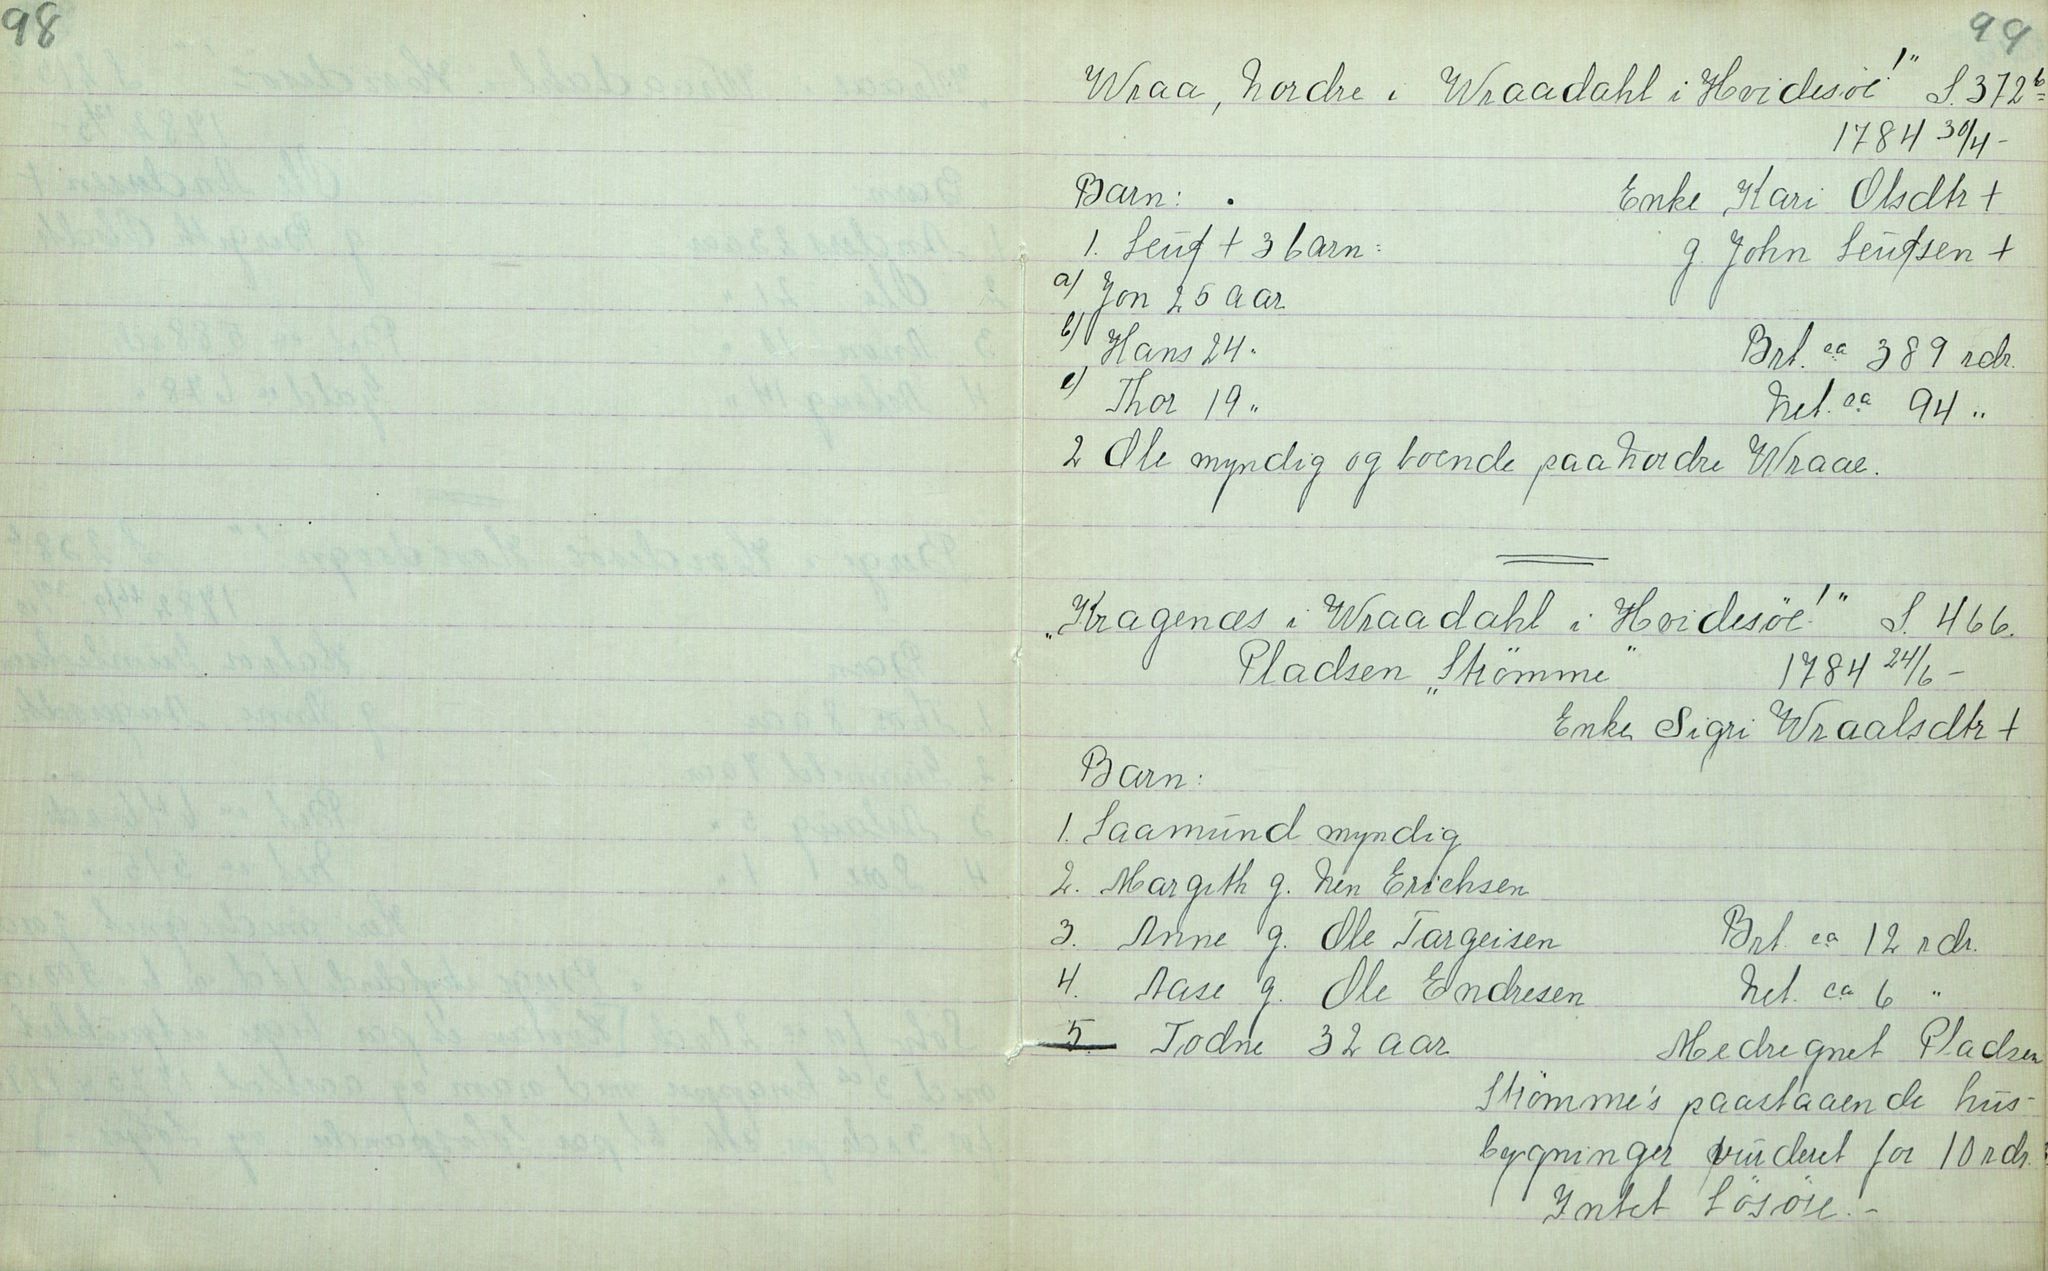 98
99
Wraa, Nordre i Wraadahl i Hvidesöe!" S. 372b
1784 30/4 -
Barn: Enke Kari Olsdtr +
1. Leuf + 3 barn: g John Leufsen +
a) Jon 25 aar
b) Hans 24 " Brt. ca 389 rdr.
c) Thor 19 " Net. ca 94 "
2 Ole myndig og boende paa Nordre Wraae.
"Kragenæs i Wraadahl i Hvidesöe!" S. 466.
Pladsen "Strömme" 1784 24/6 -
Enke Sigri Wraalsdtr +
Barn:
1. Saamund myndig
2. Margith g. Nen Erichsen
3. Anne g. Ole Targeisen Brt. ca 12 rdr.
4. Aase g. Ole Endresen Net. ca 6 "
5. Todne 32 aar Medregnet Pladsen
Strömme's paastaaende hus-
bygninger vurderet for 10 rdr.
Intet Lösöre. -